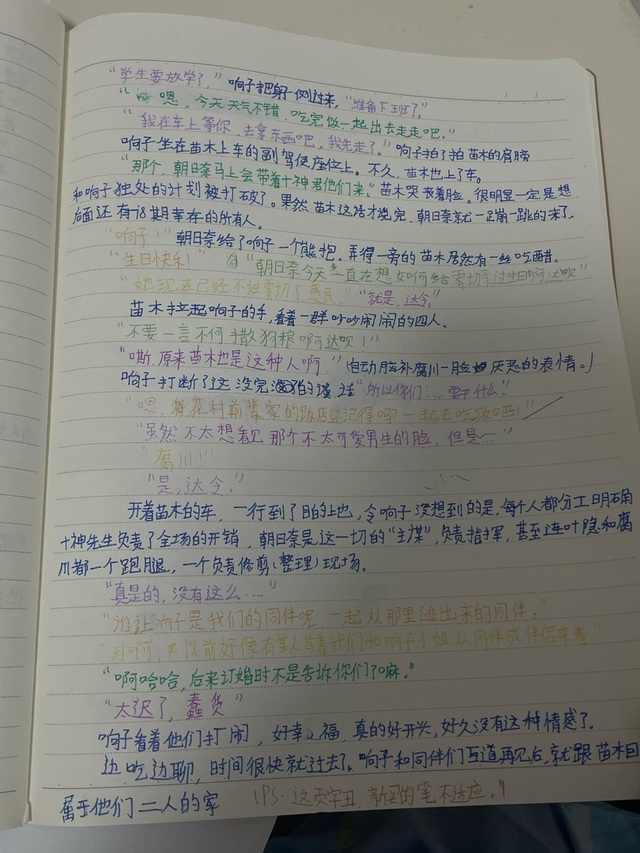 “学生要放学了，”响子把身子侧过来，“准备下班了。”
“嗯，今天天气不错，吃完饭一起出去走走吧。”
“我在车上等你，去拿东西吧，我先走了。”响子拍了拍苗木的肩膀
响子坐在苗木上车的副驾驶座位上。不久，苗木也上车。
“那个，朝日奈马上会带着十神君他们来。”苗木哭丧着脸。很明显一定是想
和响子独处的计划被打破了。果然苗木这话才说完，朝日奈就一蹦一跳的来了，
后面还有话期幸存的所有人。
“响子！”朝日奈给了响子一个熊抱，弄得一旁的苗木居然有一丝吃醋。
“生日快乐！”“朝日奈今天一直在想如何给雾切过生日啊达呗”
“她现在已经不姓雾切了，愚民。”“就是，达令。”
苗木拉起响子的手，看着一群吵吵闹闹的四人。
“不要一言不何撒狗粮啊达呗！”
“嘶，原来苗木也是这种人啊。”（自动脑补腐川一脸厌恶的表情。）
响子打断了这没完没了的谈话“所以你们……要干什么？”
“嗯，花村前辈家的饭店还记得吗？一起去吃饭吧！”
“虽然不太想看见那个不太可爱男生的脸，但是……”
“腐川！”
“是，达令。”
开着苗木的车，一行到了目的地，令响子没想到的是，每个人都分工明确
十神先生负责了全场的开销，朝日奈是这一切的“主谋”，负责指挥，甚至连叶隐和腐
川都一个跑腿，一个负责修剪（整理）现场。
“真是的，没有这么……”
“谁让响子是我们的同伴呢，一起从那里逃出来的同伴。”
“对啊，以前好像有某人背着我们和响子小姐从同伴成伴侣来着。”
“啊哈哈，后来订婚时不是告诉你们了嘛。”
“太迟了，蠢货”
响子看着他们打闹，好幸福，真的好开兴，好久没有这种情感了。
边吃边聊，时间很快就过去了。响子和同伴们互道再见后，就跟苗木回
属于他们二人的家
（PS：这页字丑，新买的笔不适应。）